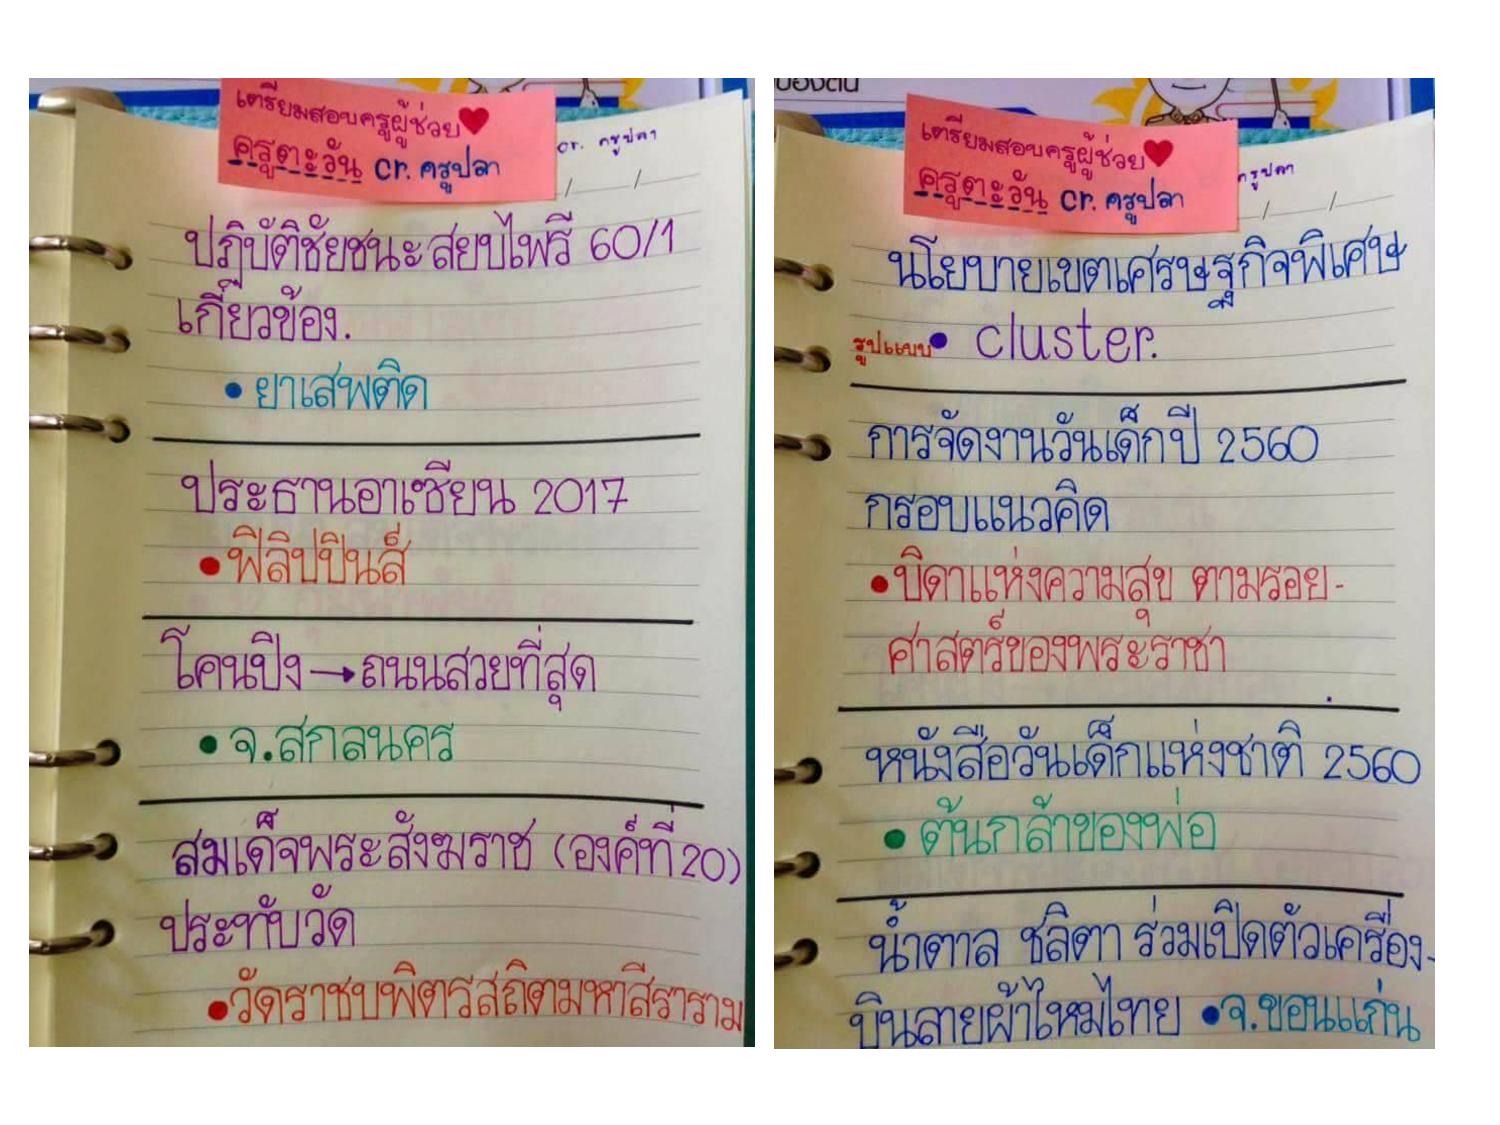 เตรียมสอบครูผู้ช่วย
ครูตะวัน cr. ครูปลา
cr. ครูปลา
ปฏิบัติชัยชนะสยบไพรี 60/1
เกี่ยวข้อง.
• ยาเสพติด
ประธานอาเซียน 2017
• ฟิลิปปินส์
โคนปิง → ถนนสวยที่สุด
• จ.สกลนคร
สมเด็จพระสังฆราช (องค์ที่ 20)
ประทับวัด
• วัดราชบพิตรสถิตมหาสีราราม
ของตน
เตรียมสอบครูผู้ช่วย
ครูตะวัน cr. ครูปลา
ครูปลา
นโยบายเขตเศรษฐกิจพิเศษ
รูปแบบ • cluster.
การจัดงานวันเด็กปี 2560
กรอบแนวคิด
• บิดาแห่งความสุข ตามรอย-
ศาสตร์ของพระราชา
หนังสือวันเด็กแห่งชาติ 2560
• ต้นกล้าของพ่อ
น้ำตาล ชลิตา ร่วมเปิดตัวเครื่อง-
บินลายผ้าไหมไทย • จ.ขอนแก่น